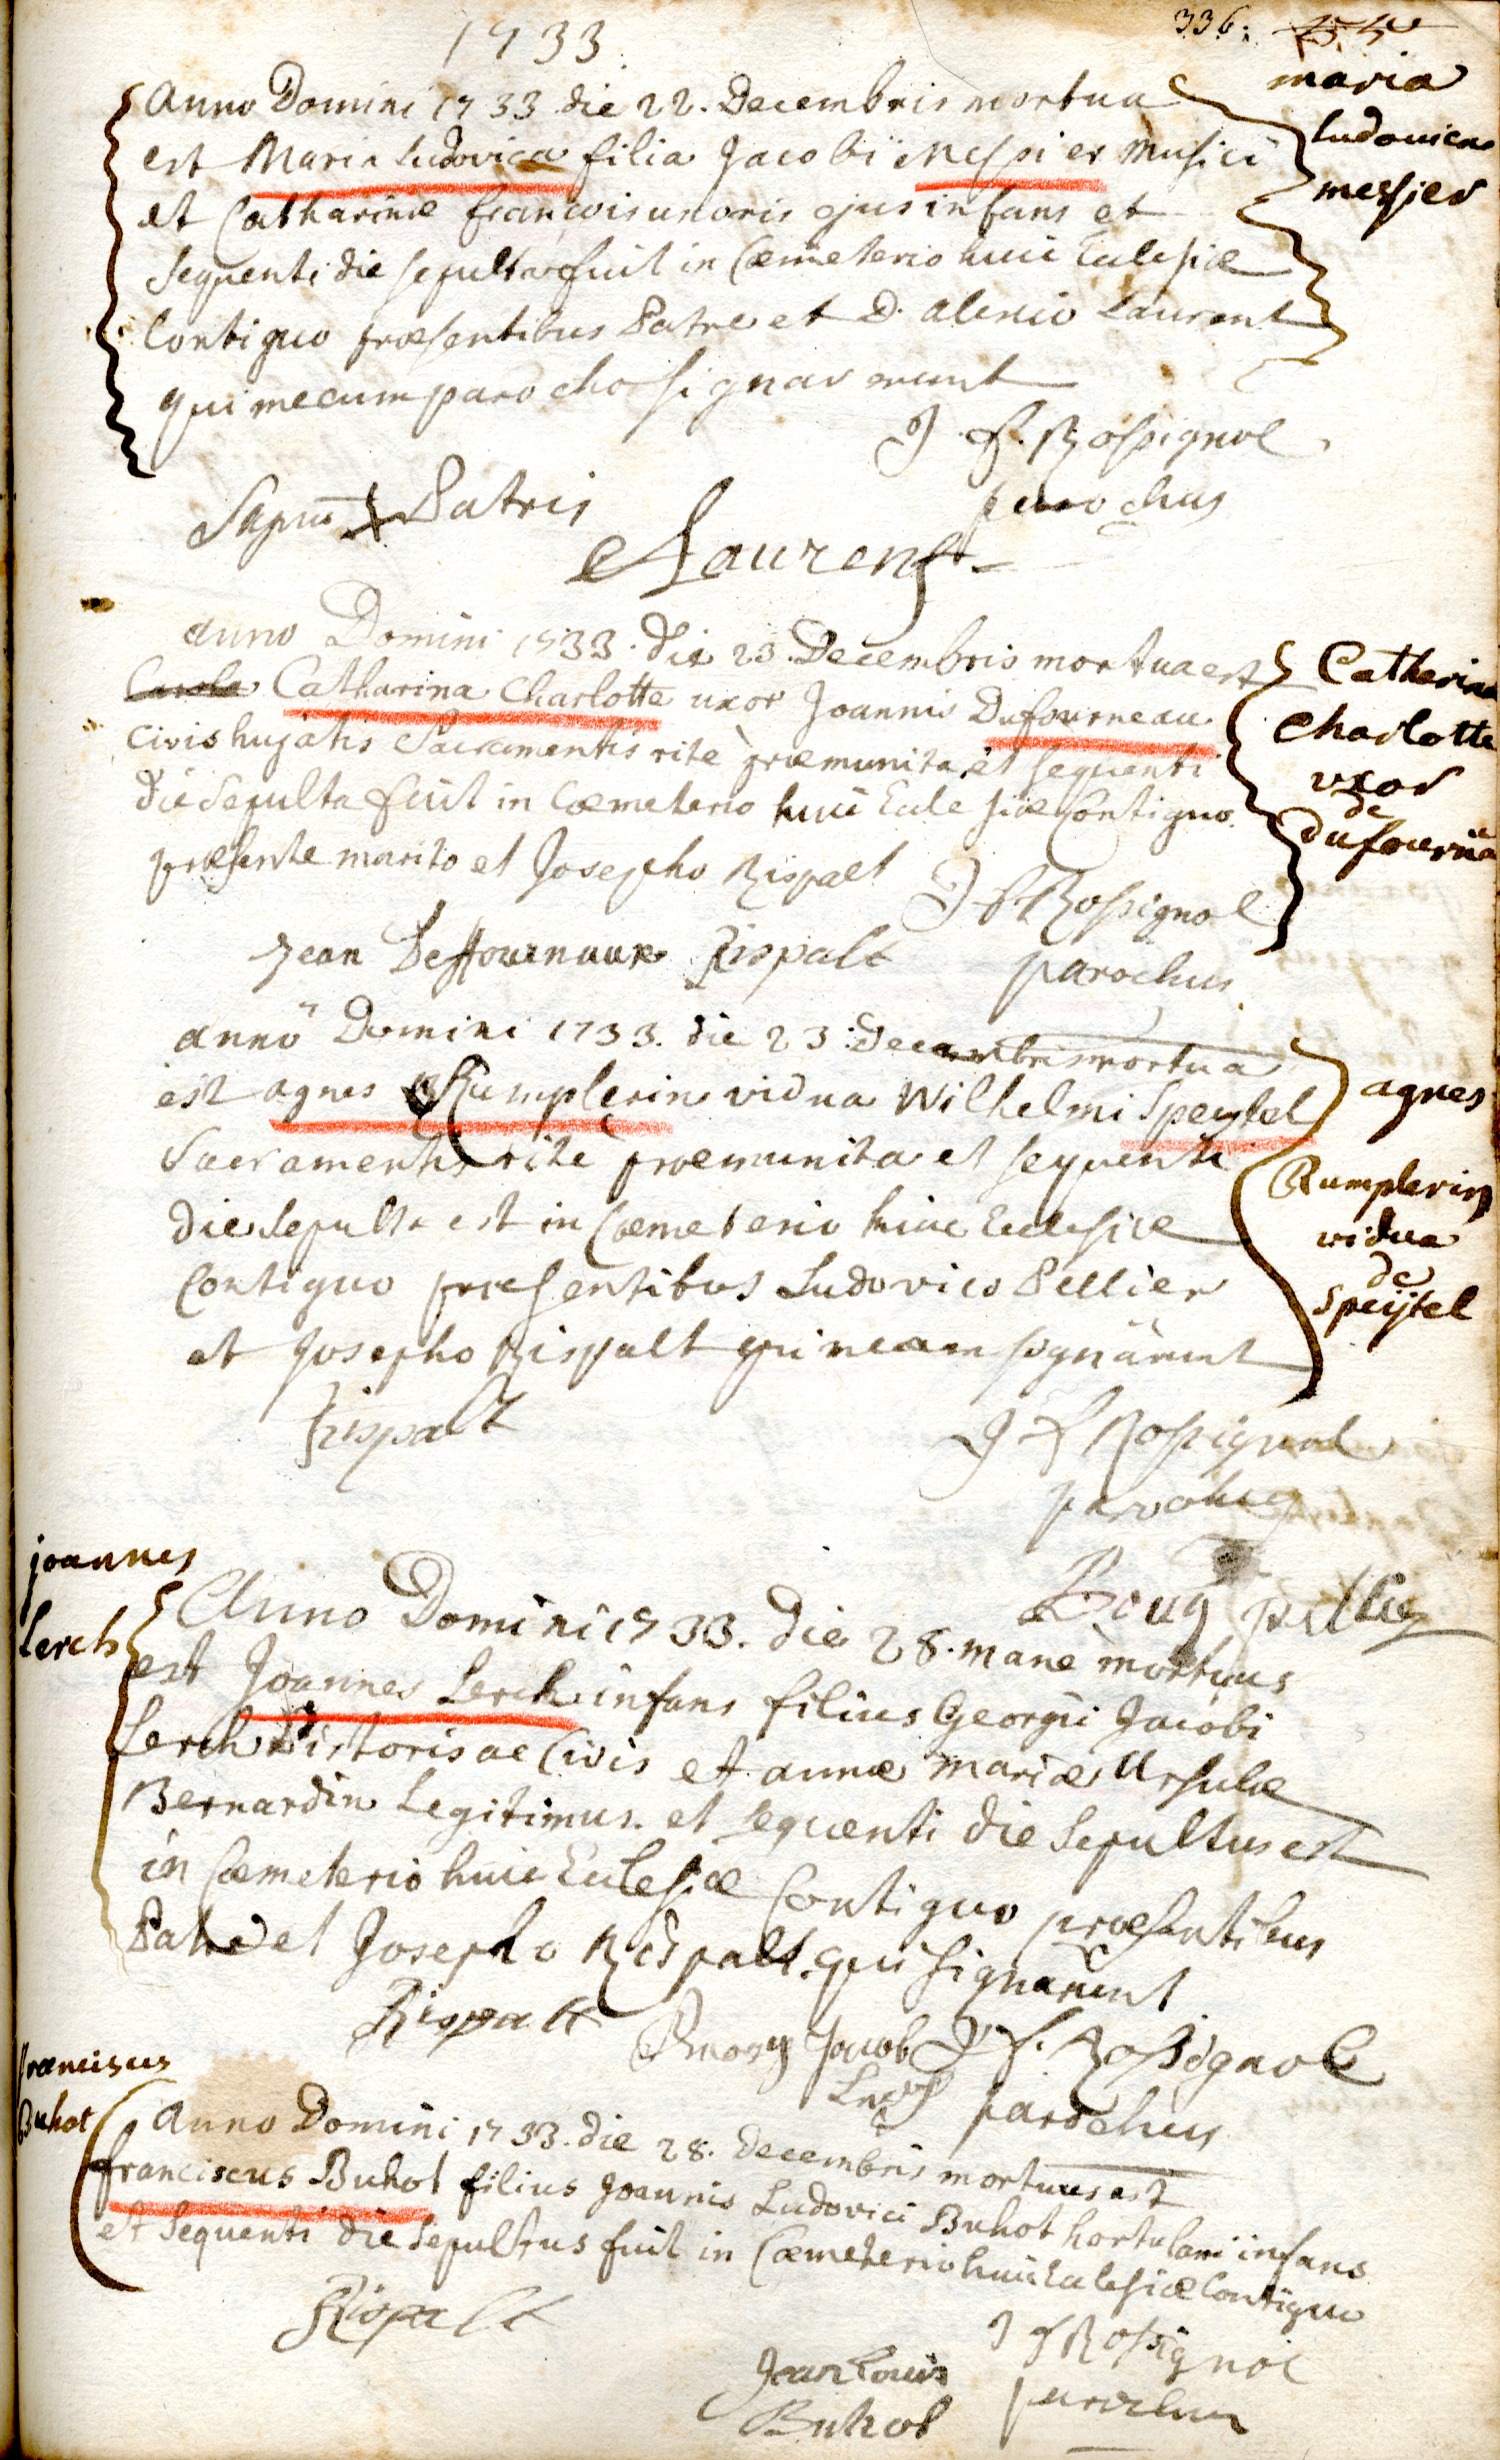 1733
336.
maria
ludovica
messier
Anno Domini 1733 die 22. Decembris mortua
est Maria Ludovica filia Jacobi Messier Musici
et Catharinæ françois uxoris ejus infans et
sequenti die sepulta fuit in Cæmeterio huic Eclesiæ
Contiguo præsentibus Patre et D. alexio Laurent
qui mecum parocho signaverunt
J. f. Rossignol
parochus
Signum + Patris
Laurent
Catherina
Charlotte
uxor
de
dufourna
anno Domini 1733. die 23. Decembris mortua est
Catharina Charlotte uxor Joannis Dufourneau
civis hujatis Sacramentis rite præmunita, et sequenti
die Sepulta fuit in Cæmeterio huic Eclesiæ Contiguo
præsente marito et Josepho Rispalt
J f Rossignol
Jean Deffournaux Rispalt parochus
agnes
Rumplerin
vidua
de
Speijtel
anno Domini 1733. die 23. Decembris mortua
est agnes Rumplerin vidua Wilhelmi Speytel
Sacramentis rite præmunita et sequenti
die Sepulta est in Cæmeterio huic Ecclesiæ
Contiguo præsentibus Ludovico Pellier
et Josepho Rispalt qui mecum signârunt
Rispalt
J f Rossignol
parochus
joannes
Lerch
Anno Domini 1733. die 28. mane mortuus
est Joannes Lerch infans filius Georgii Jacobi
Lerch Pistoris ac Civis et annæ mariæ Ursulæ
Bernardin Legitimus. et sequenti die Sepultus est
in Cæmeterio huic Eclesiæ Contiguo præsentibus
Patre et Josepho Rispalt qui signârunt
Rispalt
Jacob
J. f. Rossignol
parochus
franciscus
Buhot
Anno Domini 1733. die 28. Decembris mortuus est
franciscus Buhot filius Joannis Ludovici Buhot hortulani infans
et Sequenti die Sepultus fuit in Cæmeterio huic Eclesiæ Contiguo
Rispalt
J f Rossignol
parochus
Jean Louis
Buhot